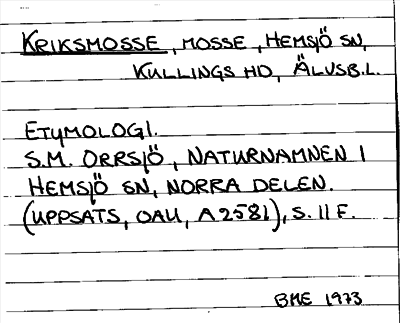 KRIKSMOSSE, MOSSE, HEMSJÖ SN,
KULLINGS HD, ÄLVSB.L.
ETYMOLOGI.
S.M. ORRSJÖ, NATURNAMNEN I
HEMSJÖ SN, NORRA DELEN.
(UPPSATS, OAU, A2581), S. 11 F.
BME 1973